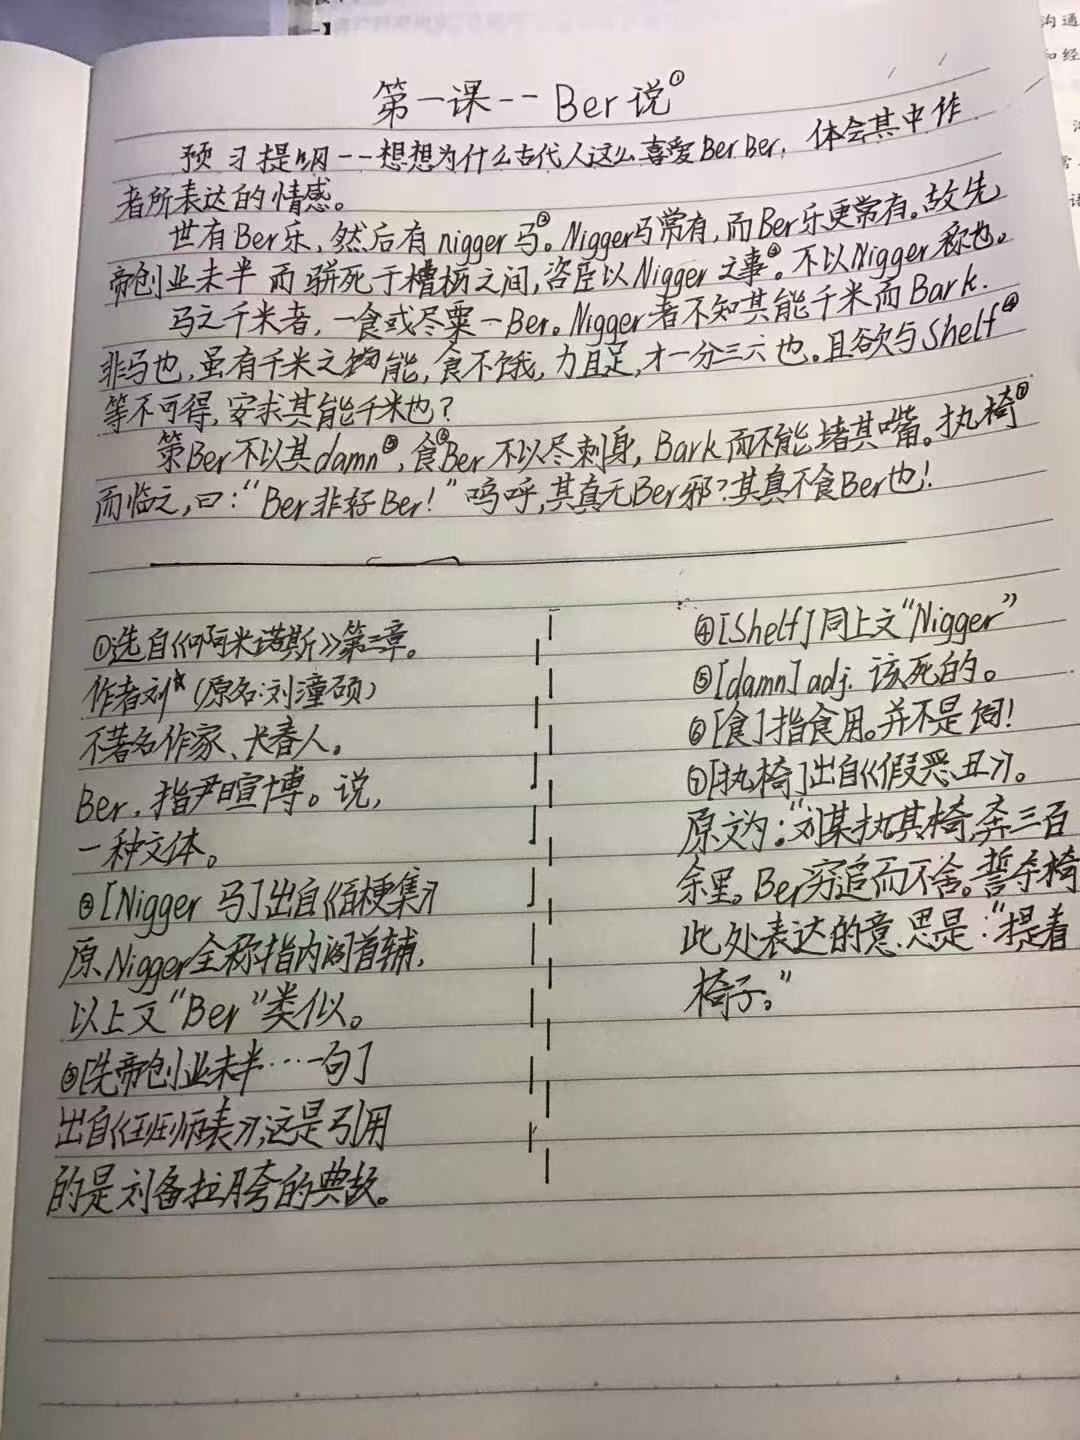 第一课--Ber说①
预习提纲--想想为什么古代人这么喜爱BerBer,体会其中作
者所表达的情感。
世有Ber乐,然后有nigger马②。Nigger马常有,而Ber乐更常有。故先
帝创业未半而骈死于槽枥之间,咨臣以Nigger之事③。不以Nigger称也。
马之千米者,一食或尽粟一Ber。Nigger者不知其能千米而Bark.
非马也,虽有千米之能,食不饿,力且足,才一分三六也。且欲与Shelf④
等不可得,安求其能千米也?
策Ber不以其damn⑤,食⑥Ber不以尽刺身,Bark而不能堵其嘴。执椅⑦
而临之,曰:“Ber非好Ber!”呜呼,其真无Ber邪?其真不食Ber也!
①选自《阿米诺斯》第三章。
作者刘☆(原名:刘潼硕)
不著名作家、长春人。
Ber,指尹暄博。说,
一种文体。
②[Nigger 马]出自《百梗集》
原Nigger全称指内阁首辅,
以上文“Ber”类似。
③[先帝创业未半…一句]
出自《班师表》,这是引用
的是刘备拉胯的典故。
④[Shelf]同上文“Nigger”
⑤[damn]adj. 该死的。
⑥[食]指食用。并不是饲!
⑦[执椅]出自《假恶丑》。
原文为:“刘某执其椅,奔三百
余里。Ber穷追而不舍。誓夺椅
此处表达的意思是:“提着
椅子。”